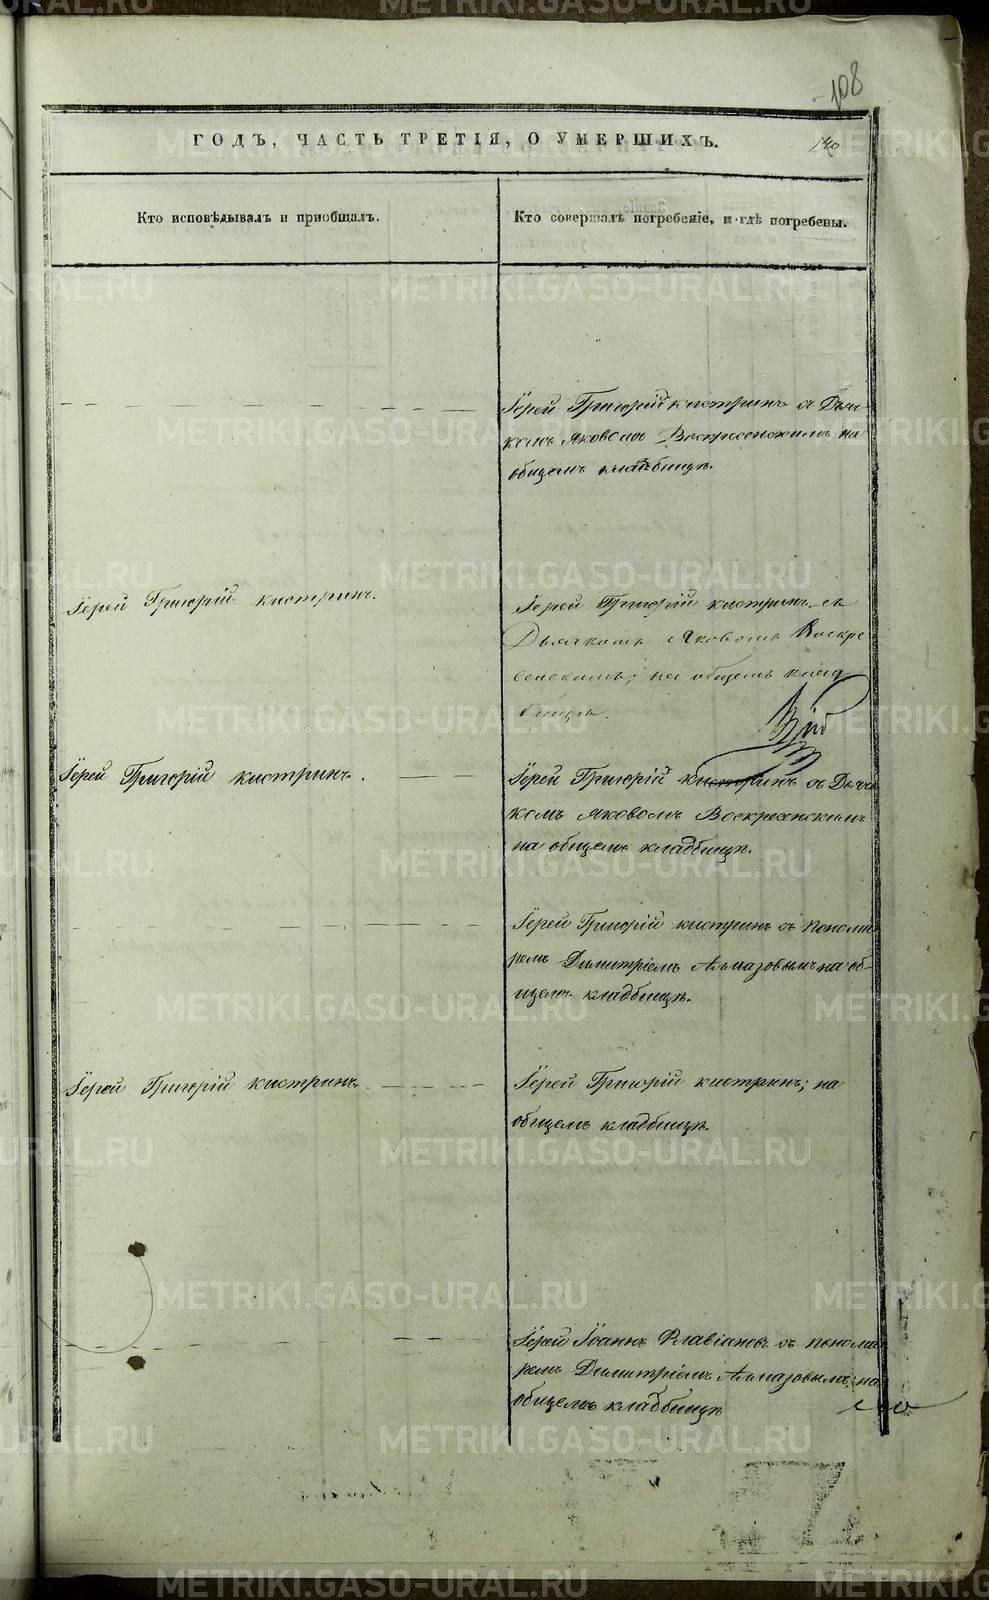 108
ГОДЪ, ЧАСТЬ ТРЕТІЯ, О УМЕРШИХЪ.
Кто исповѣдывалъ и пріобщалъ.
Кто совершалъ погребеніе, и гдѣ погребены.
Іерей Григорій Кистринъ съ Дьяч-
комъ Яковомъ Воскресенскимъ на
общемъ кладбищѣ.
Іерей Григорій Кистринъ.
Іерей Григорій Кистринъ съ
Дьячкомъ Яковомъ Воскре-
сенскимъ; на общемъ клад-
бищѣ.
Іерей Григорій Кистринъ.
Іерей Григорій Кистринъ съ Дьяч-
комъ Яковомъ Воскресенскимъ
на общемъ кладбищѣ.
Іерей Григорій Кистринъ съ понома-
ремъ Димитріемъ Алмазовымъ на об-
щемъ кладбищѣ.
Іерей Григорій Кистринъ.
Іерей Григорій Кистринъ; на
общемъ кладбищѣ.
Іерей Іоаннъ Флавіановъ съ понома-
ремъ Димитріемъ Алмазовымъ; на
общемъ кладбищѣ
METRIKI.GASO-URAL.RU